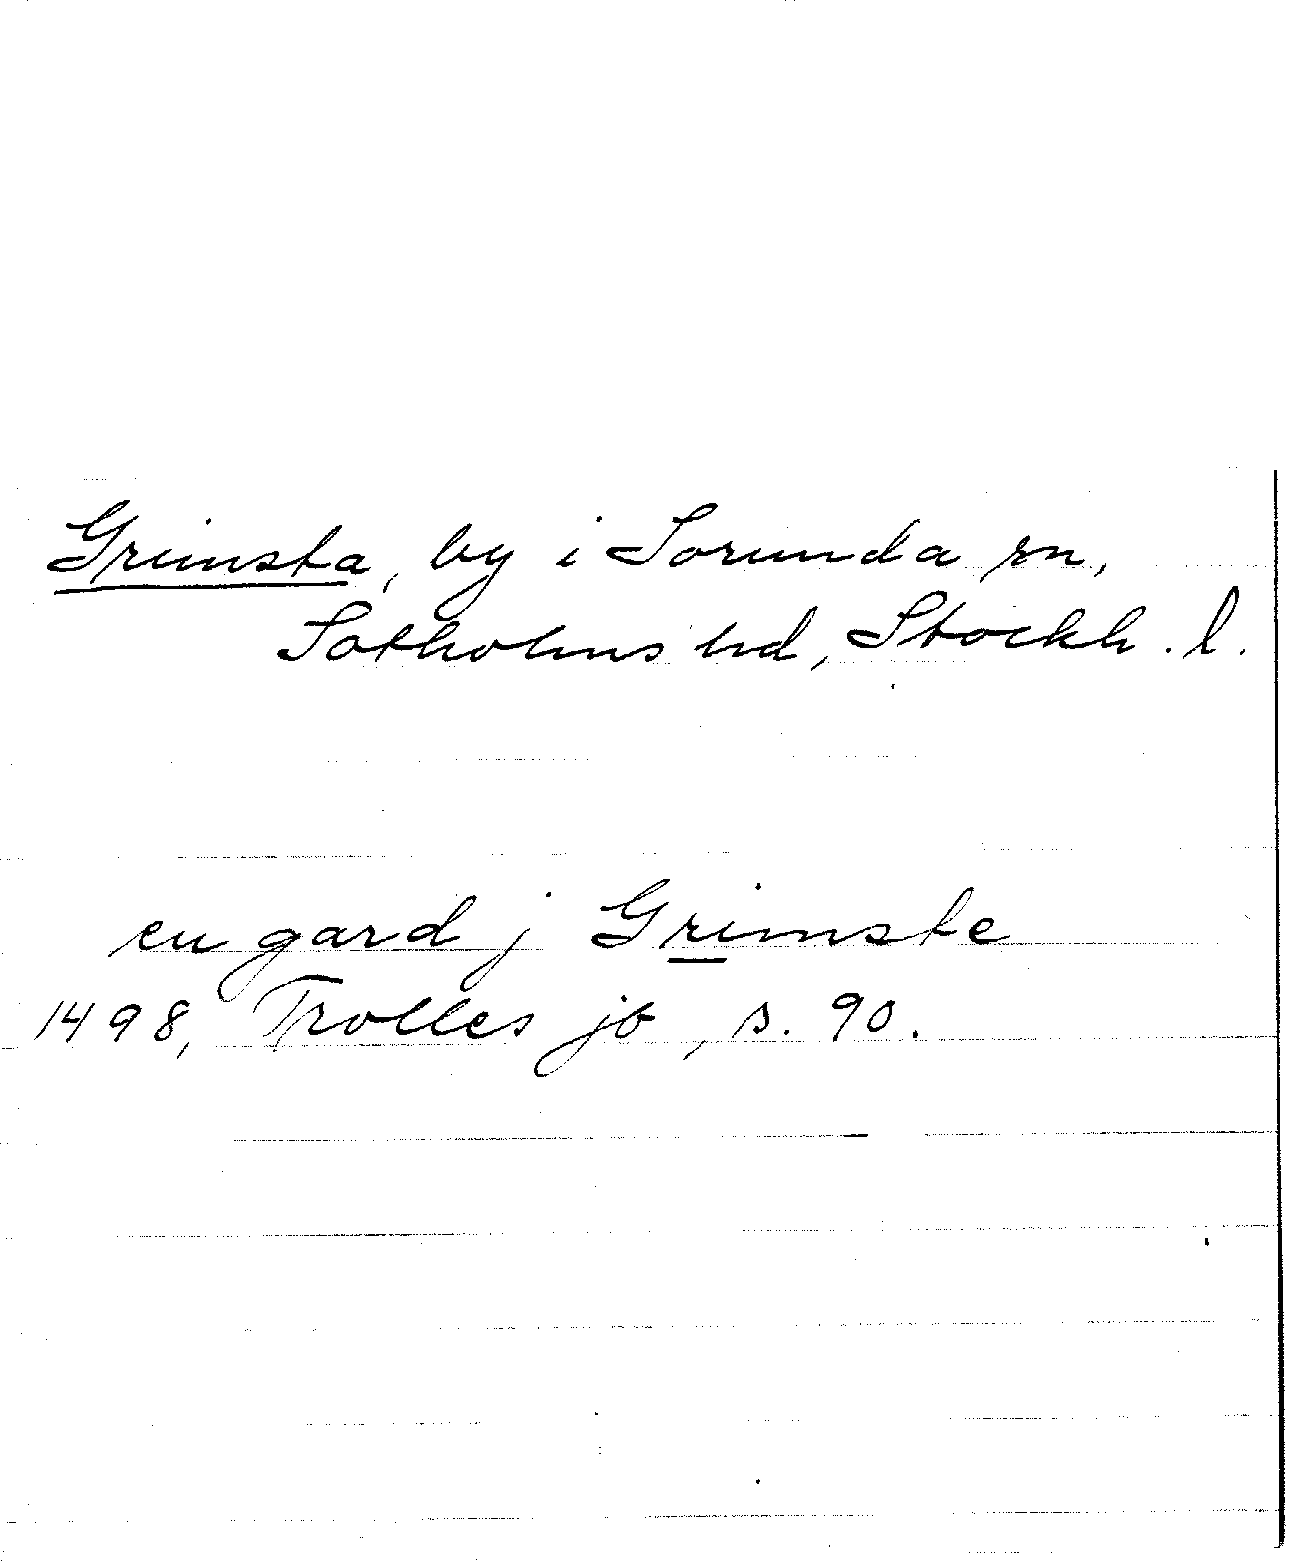 Grimsta, by i Sorunda sn,
Sotholms hd, Stockh. l.
en gard j Grimste
1498, Trolles jb, s. 90.